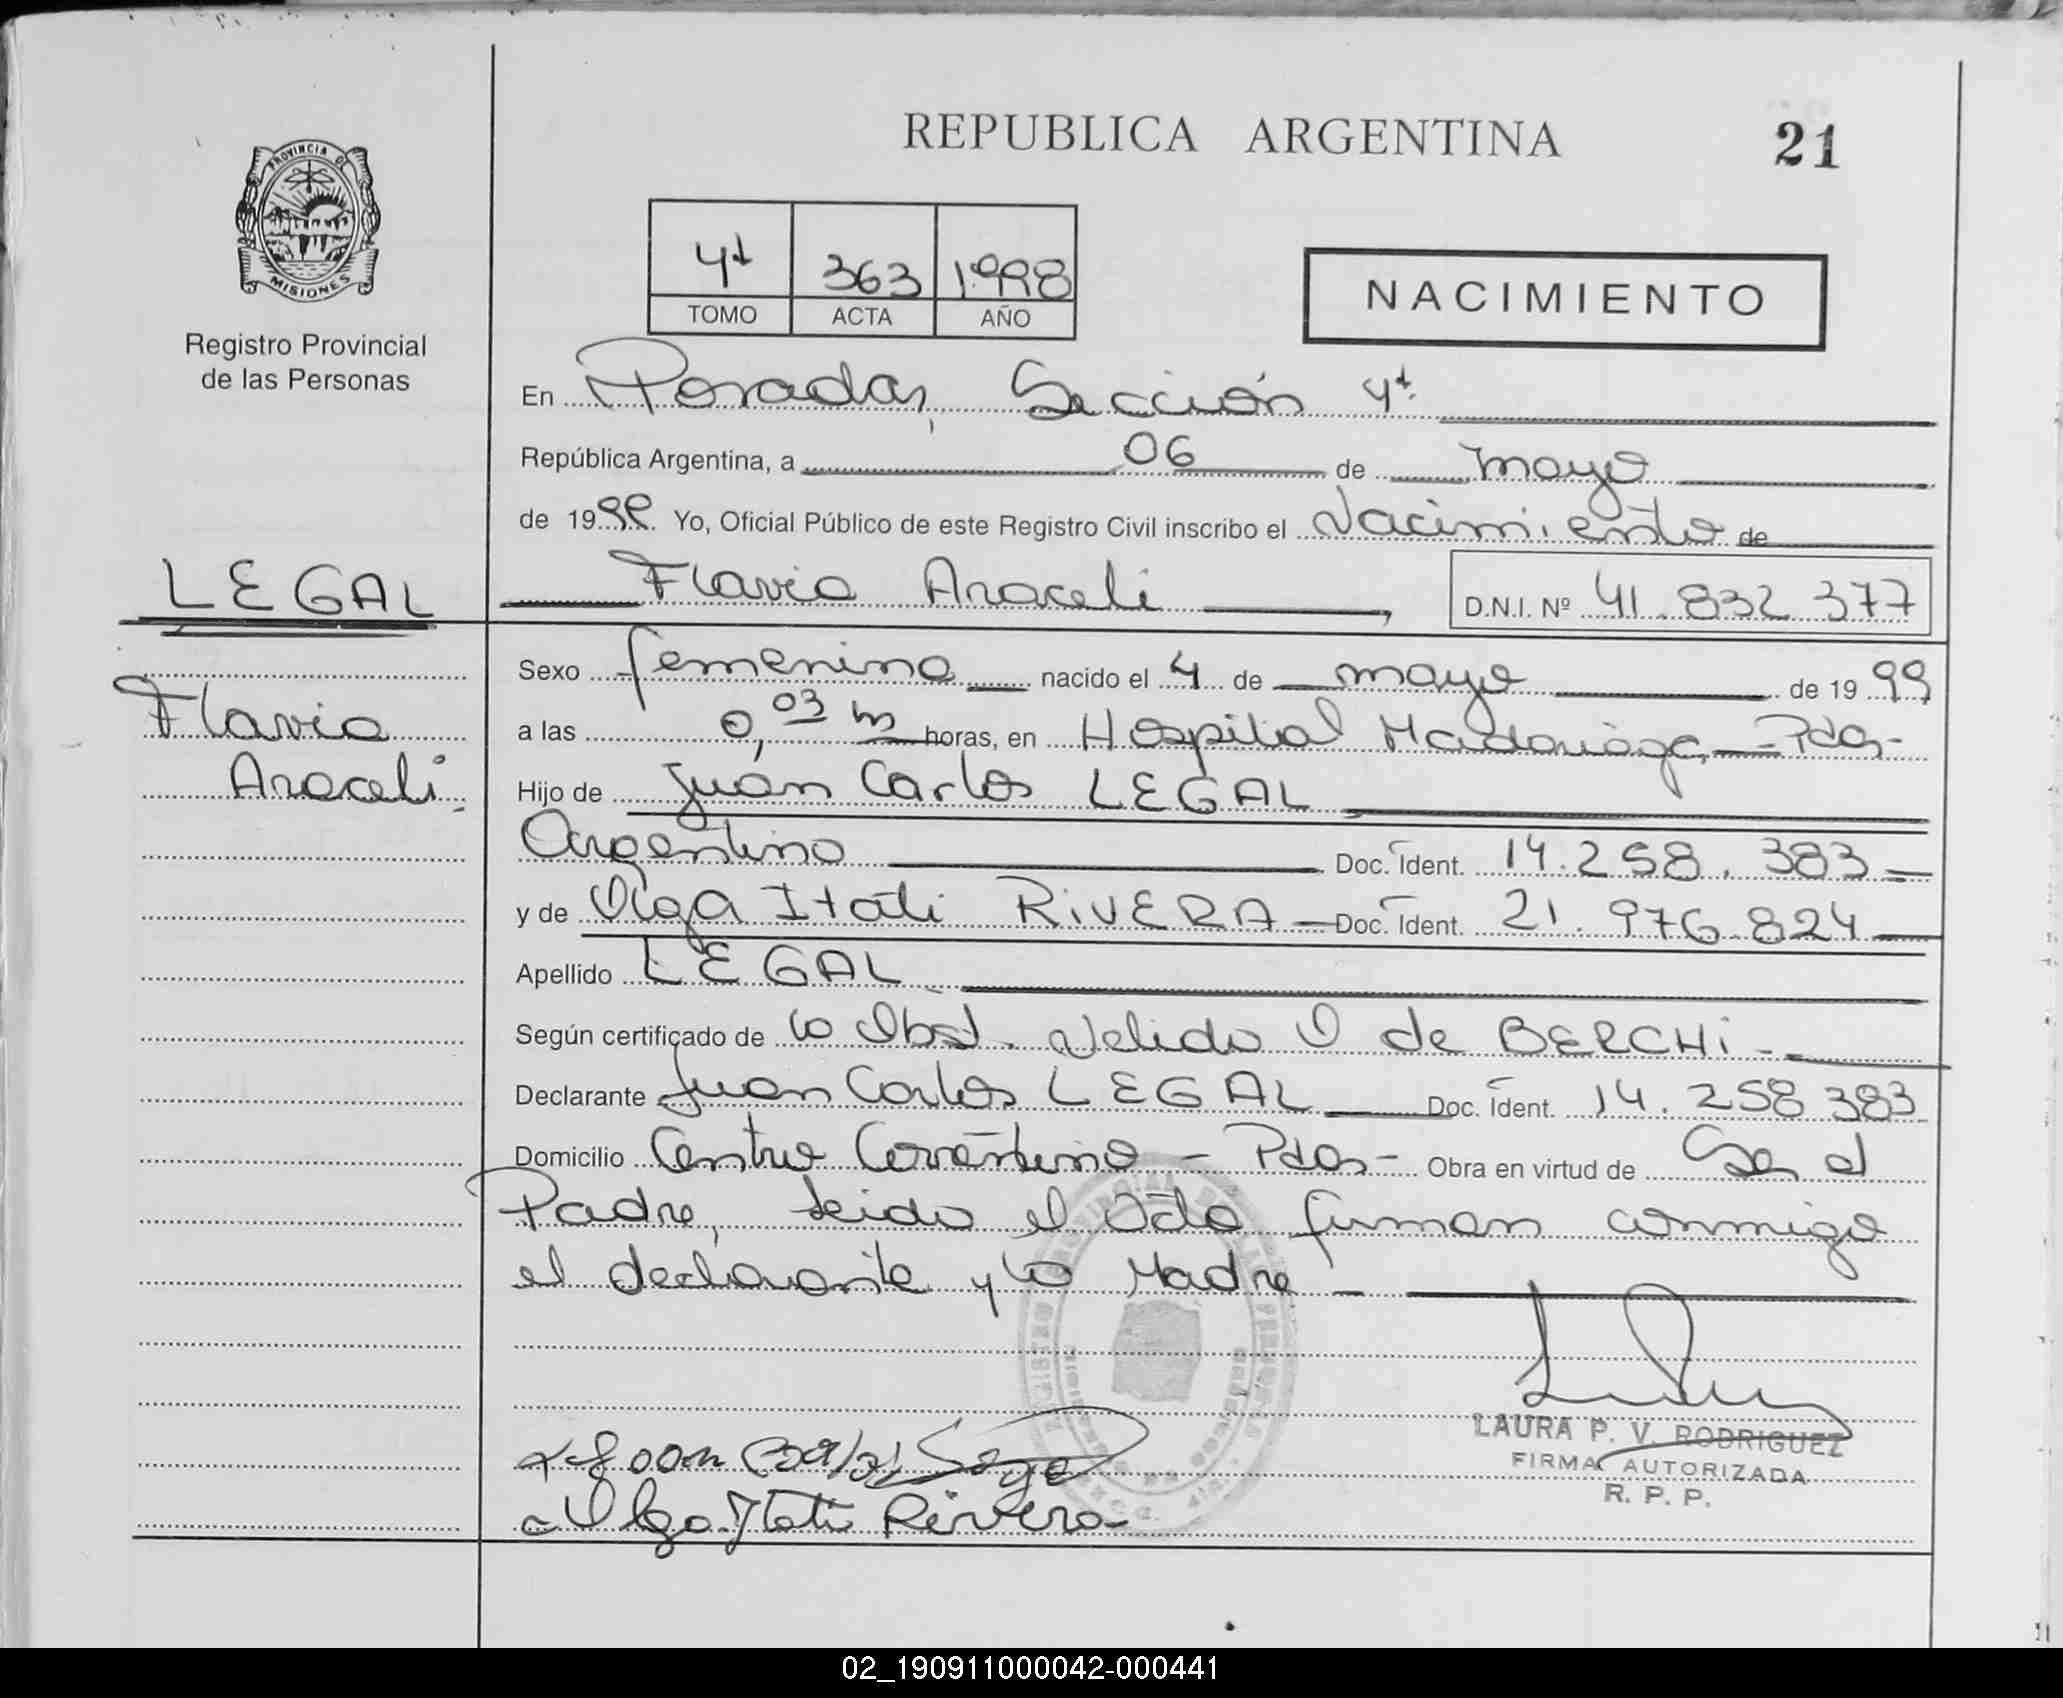 REPUBLICA ARGENTINA
21
PROVINCIA DE
MISIONES
Registro Provincial
de las Personas
4ª 363 1998
TOMO ACTA AÑO
NACIMIENTO
En Posadas, Sección 4ª
República Argentina, a 06 de mayo
de 1999 Yo, Oficial Público de este Registro Civil inscribo el Nacimiento de
LEGAL
Flavia Araceli, D.N.I. Nº 41.832.377
Sexo femenino nacido el 4 de mayo de 1999
Flavia
a las 0,03 hs horas, en Hospital Madariaga - Pdas-
Araceli
Hijo de Juan Carlos LEGAL
Argentino Doc. Ident. 14.258.383
y de Olga Itati RIVERA Doc. Ident. 21.976.824
Apellido LEGAL
Según certificado de la Obst. Nelida O de BERCHI
Declarante Juan Carlos LEGAL Doc. Ident. 14.258.383
Domicilio Centro Correntino - Pdas- Obra en virtud de Ser el
Padre, leido el Acta firman conmigo
el declarante y la Madre
LAURA P. V. RODRIGUEZ
FIRMA AUTORIZADA
R. P. P.
Olga Itati Rivera
02_190911000042-000441